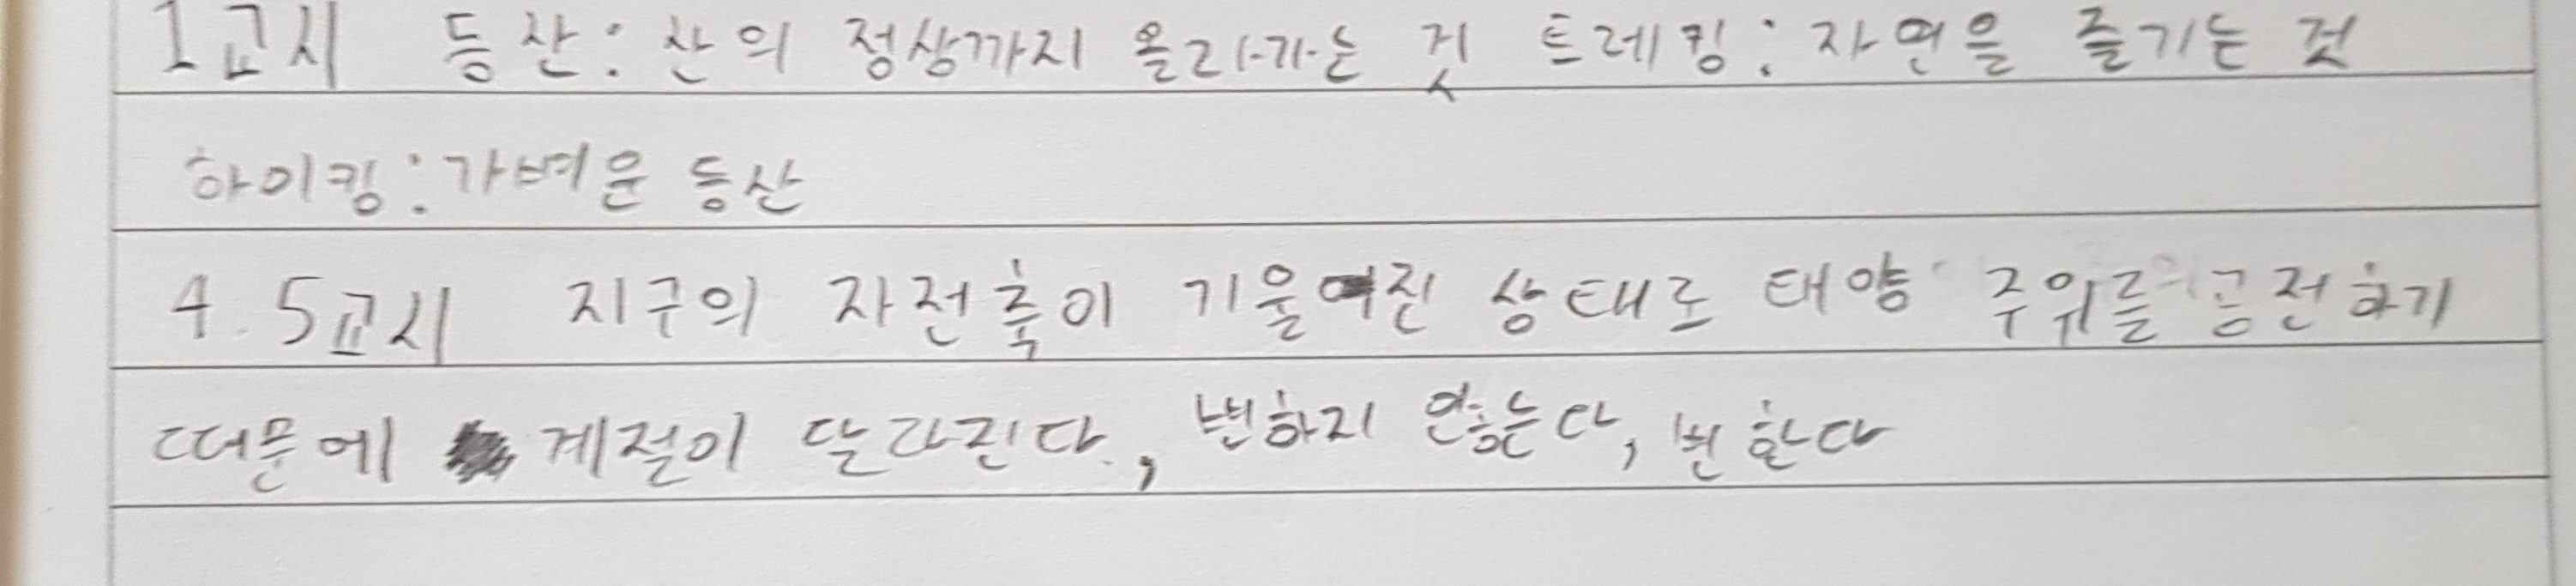 1교시 등산: 산의 정상까지 올라가는 것 트레킹: 자연을 즐기는 것
하이킹: 가벼운 등산
4. 5교시 지구의 자전축이 기울여진 상태로 태양 주위를 공전하기
때문에 계절이 달라진다., 변하지 않는다, 변한다